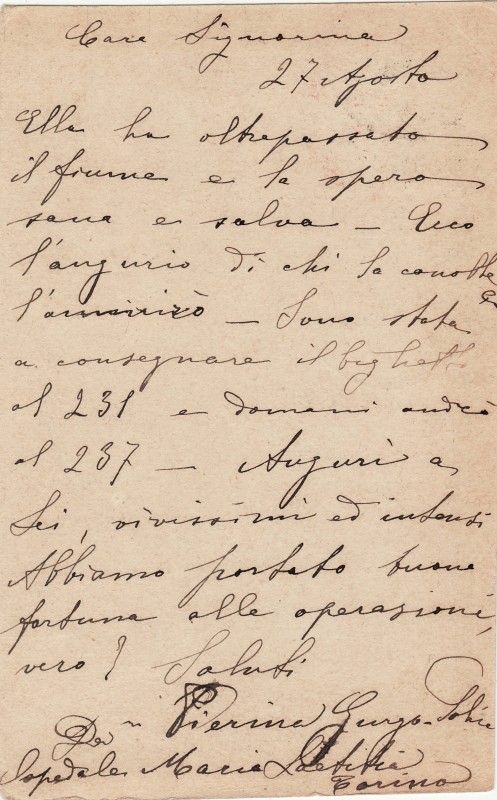 Cara Signorina
27 Agosto
Ella ha oltrepassato
il fiume e la spero
sana e salva – Ecco
l'augurio di chi la conobbe
e
l'ammirò – Sono stata
a consegnare il biglietto
al 231 e domani andrò
al 237 – Auguri a
Lei, vivissimi ed intensi
Abbiamo portato buona
fortuna alle operazioni,
vero? Saluti
Pierina Gurgo
Ospedale Maria Laetitia
Torino